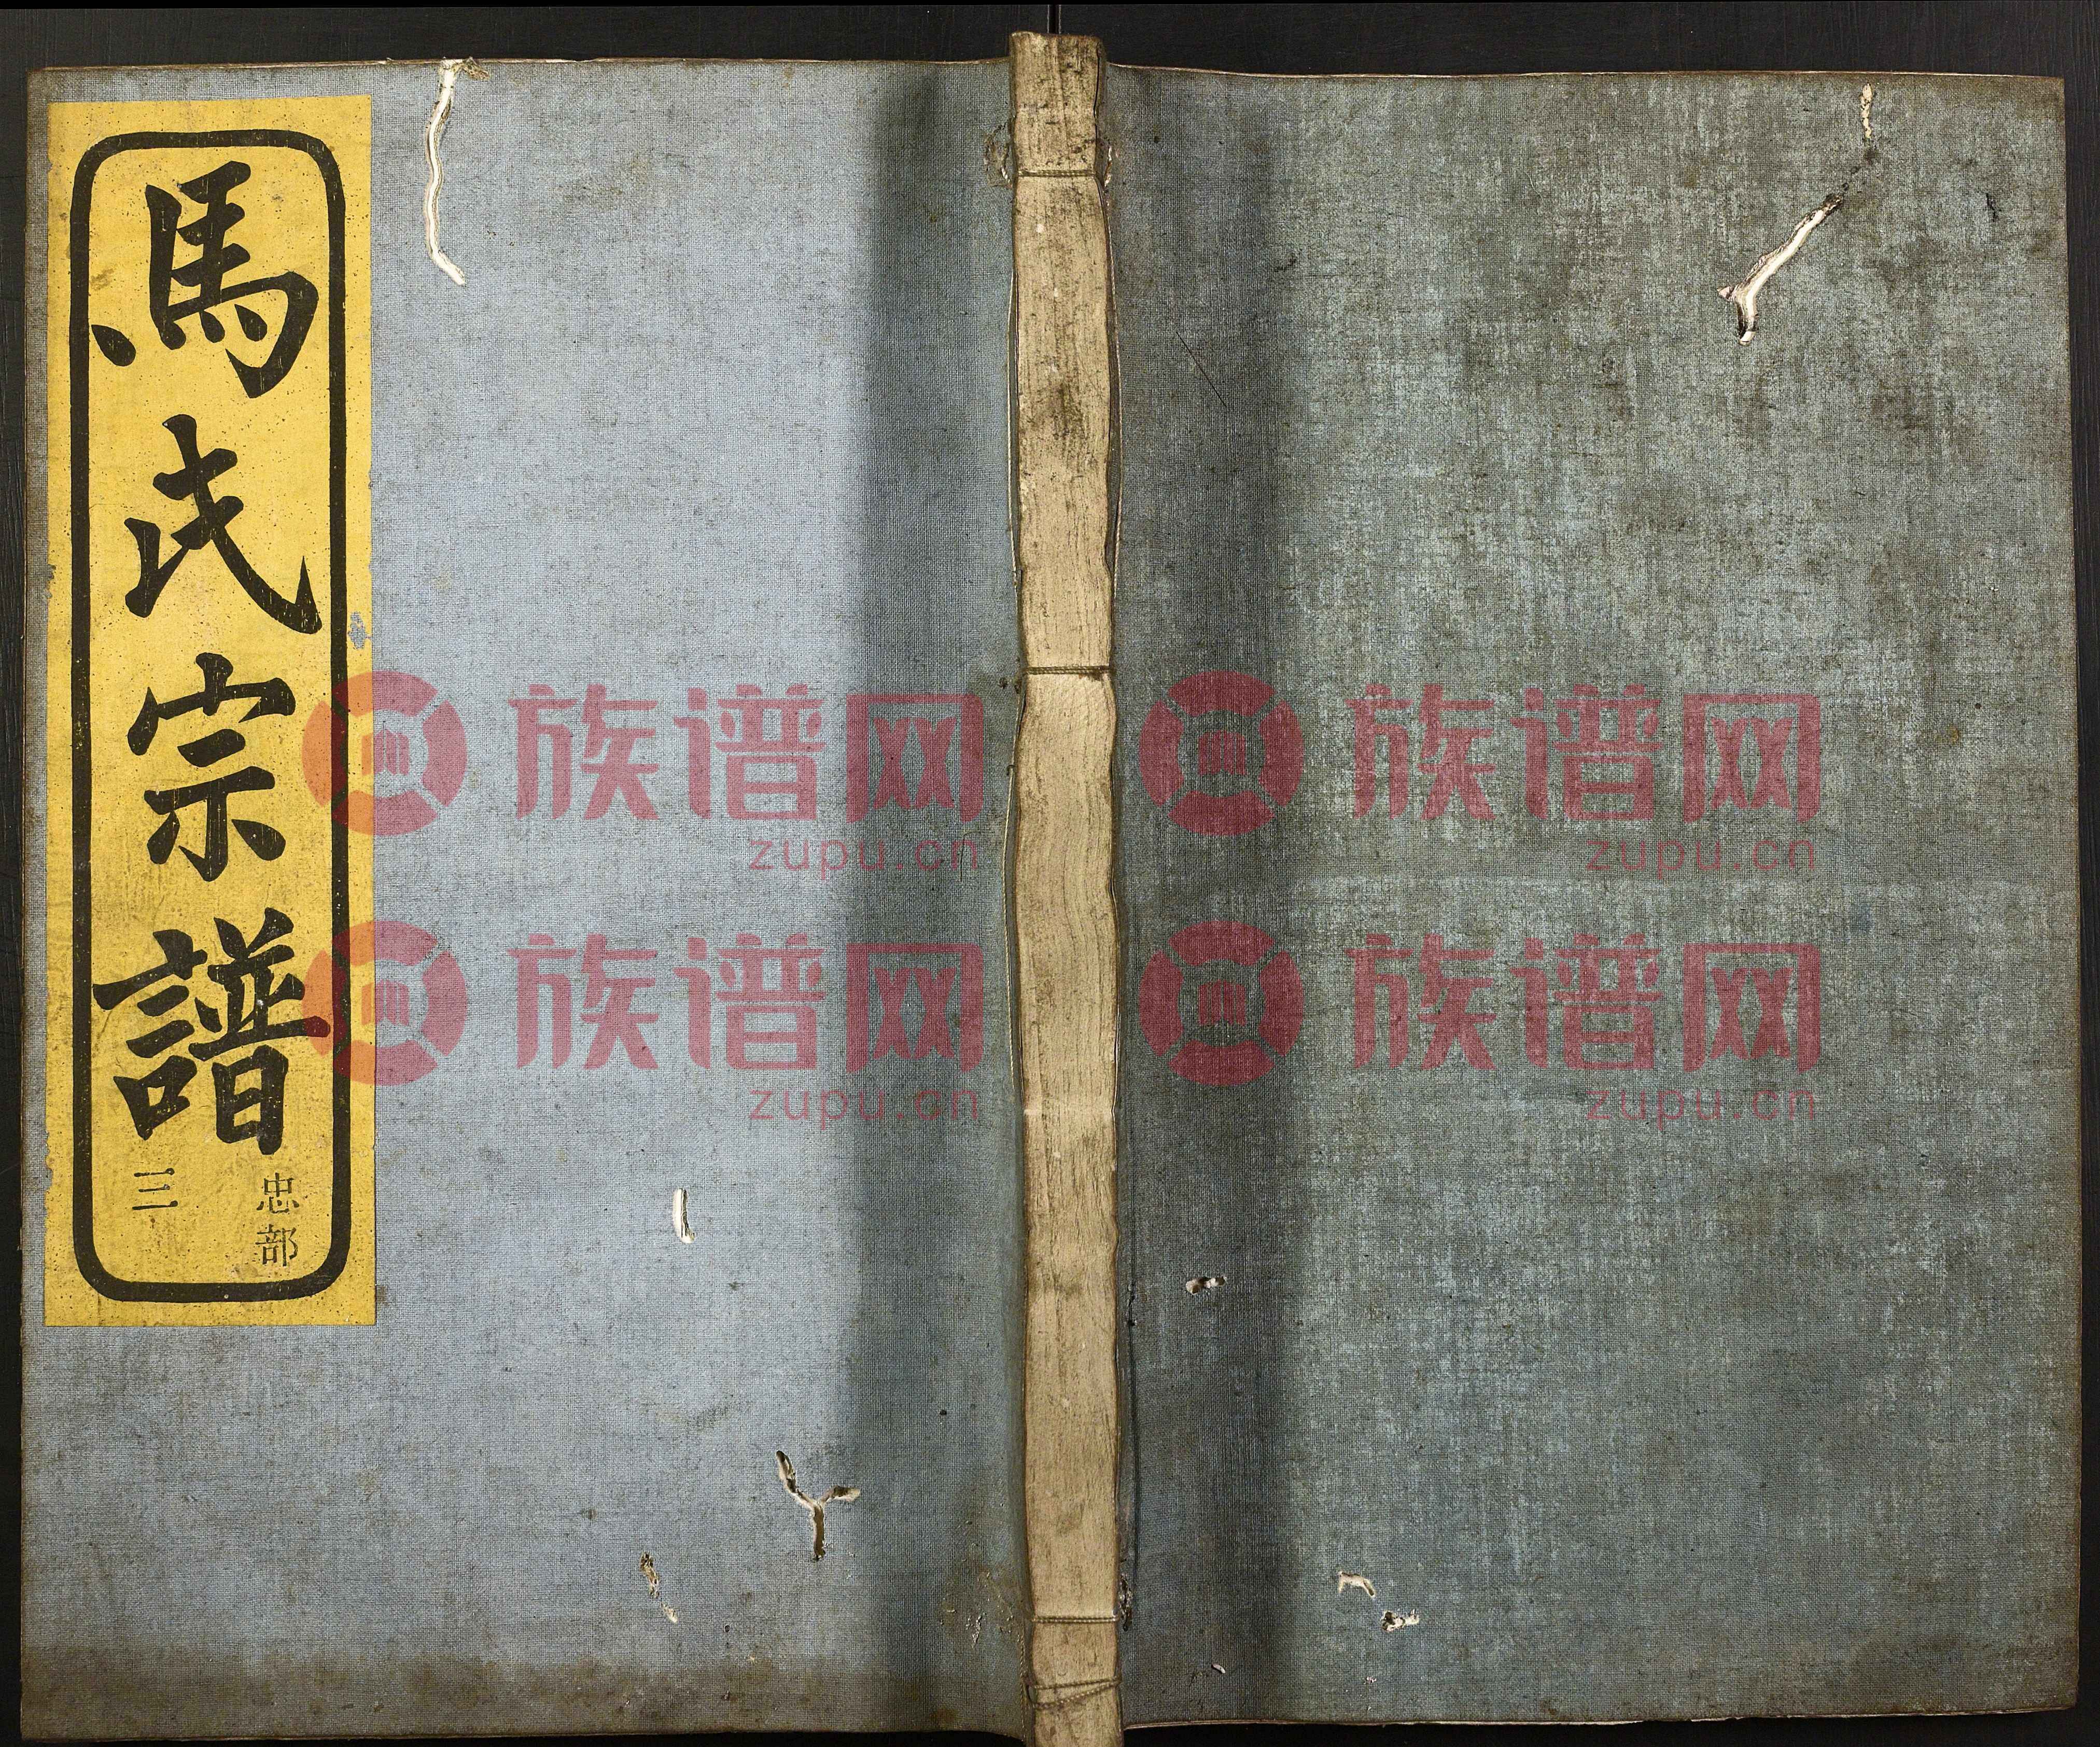 馬氏宗譜
忠部
三
族谱网
zupu.cn
族谱网
zupu.cn
族谱网
zupu.cn
族谱网
zupu.cn